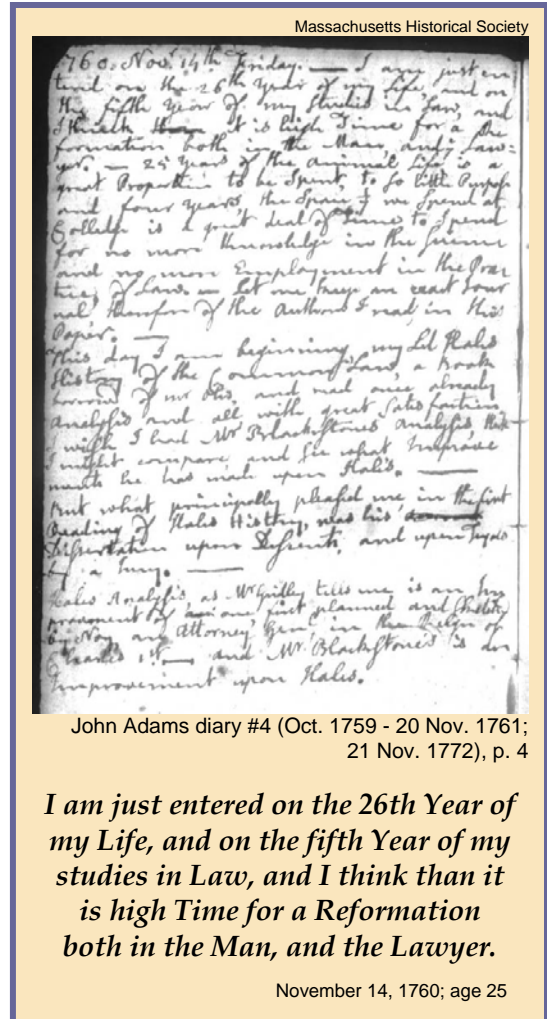 Massachusetts Historical Society
1760. Novr. 14th Friday. — I am just en
tered on the 26th Year of my Life, and on
the fifth Year of my studies in Law, and
I think it is high Time for a Re
formation both in the Man, and Law=
yer. — 25 Years of the animal Life is a
great Proportion to be Spent, to so little Purpose
and four years, the Space we Spend at
Colledge is a great deal of Time to Spend
for no more Knowledge in the science
and no more Employment in the Prac
tice of Law. — Let me keep an exact Jour
nal therefor of the Authors I read, in this
Paper. —
This day I am beginning my Ld Hales
History of the Common Law, a Book
borrowed of Mr Otis, and read once already
Analysis and all with great Satisfaction.
I wish I had Mr Blackstones Analysis, that
I might compare, and see what Improve
ments he has made upon Hale's. —
But what principally pleased me in the first
Reading of Hales History, was his
Dissertation upon Descents, and upon Tryals
by a Jury. —
Hales Analysis, as Mr Gridley tells me is an Im
provement of one first planned and Sketched
by Noy, an Attorney Genl in the Reign of
Charles 1st — and Mr. Blackstone's is an
Improvement upon Hales.
John Adams diary #4 (Oct. 1759 - 20 Nov. 1761;
21 Nov. 1772), p. 4
I am just entered on the 26th Year of
my Life, and on the fifth Year of my
studies in Law, and I think than it
is high Time for a Reformation
both in the Man, and the Lawyer.
November 14, 1760; age 25